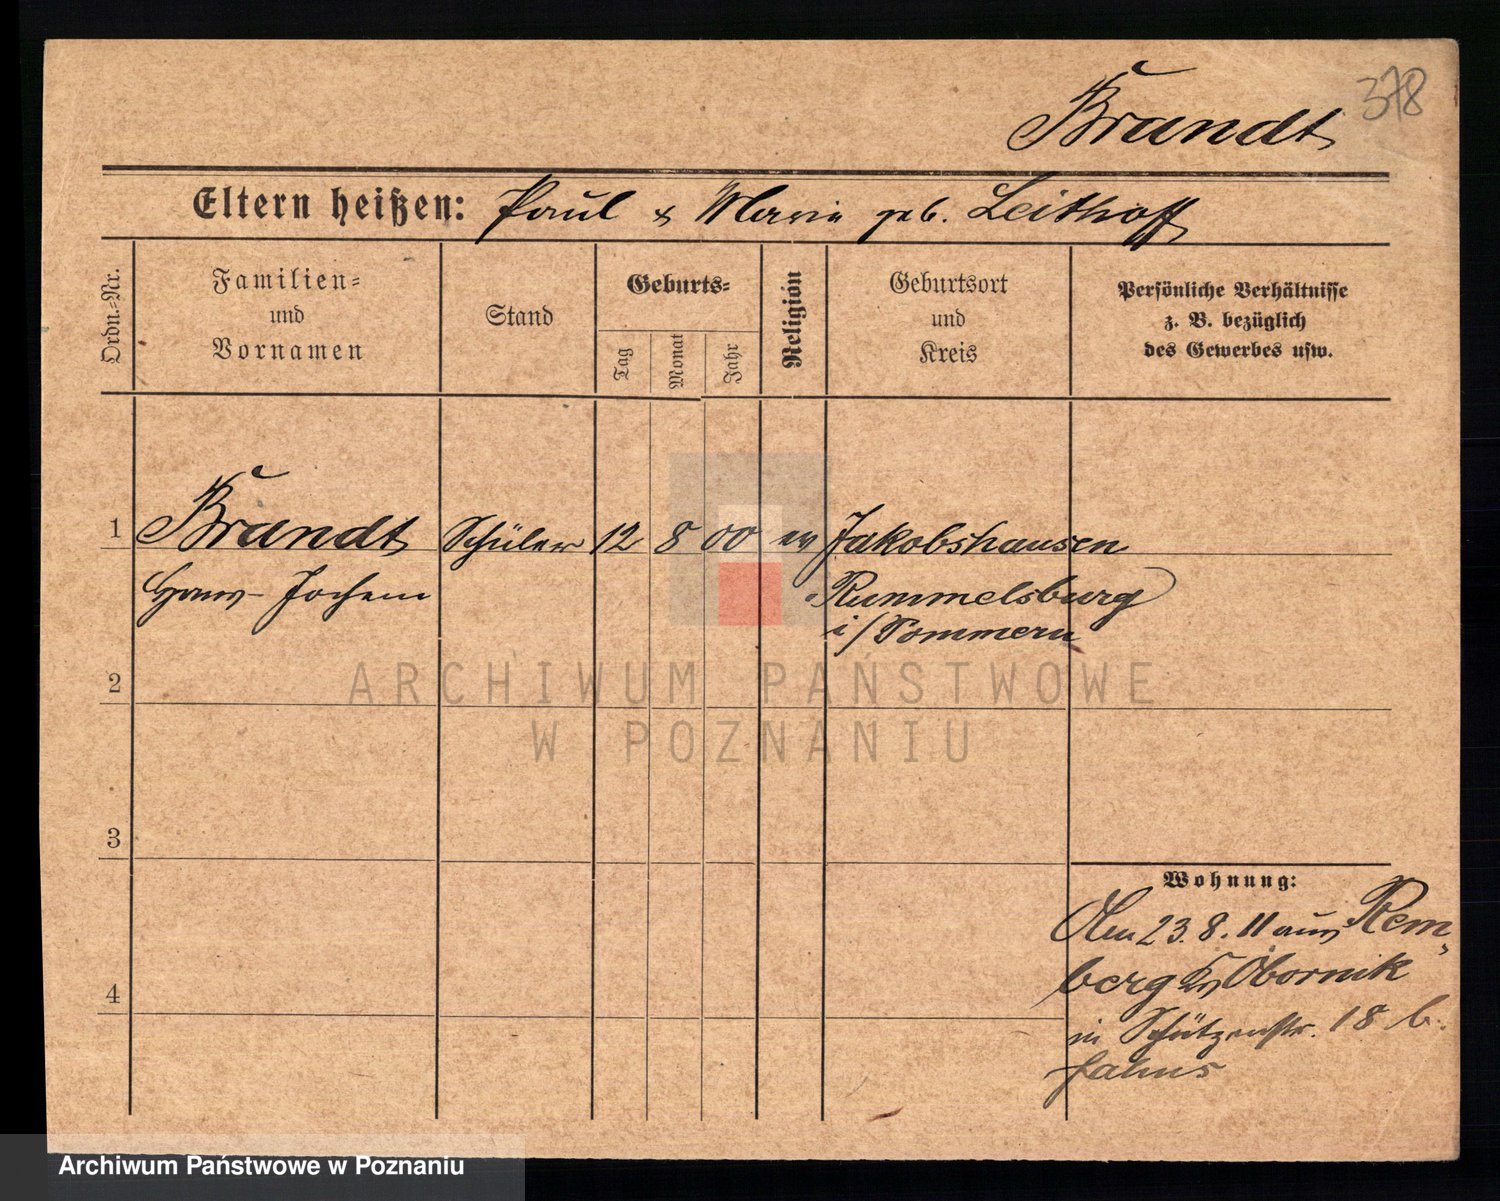 378
Brandt
Eltern heißen: Paul & Marie geb. Leithoff
Ordn.-Nr.
Familien-
und
Vornamen
Stand
Geburts-
Tag
Monat
Jahr
Religion
Geburtsort
und
Kreis
Persönliche Verhältnisse
z. B. bezüglich
des Gewerbes usw.
1 Brandt Schüler 12 8 00 ev Jakobshausen
Hans-Jochem Rummelsburg
i/Pommern
2
3
4
Wohnung:
23.8.11 aus Rem-
berg Kr Obornik
in Schützenstr. 18 b.
ARCHIWUM PAŃSTWOWE
W POZNANIU
Archiwum Państwowe w Poznaniu